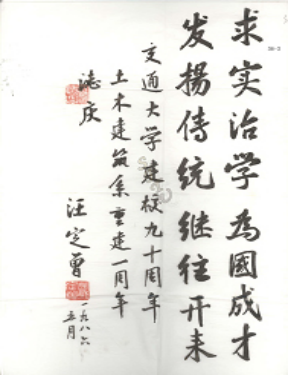 求实治学為國成才
发揚傳统继往开来
交通大学建校九十周年
土木建筑系重建一周年
誌庆
汪定曾
一九八六
五月